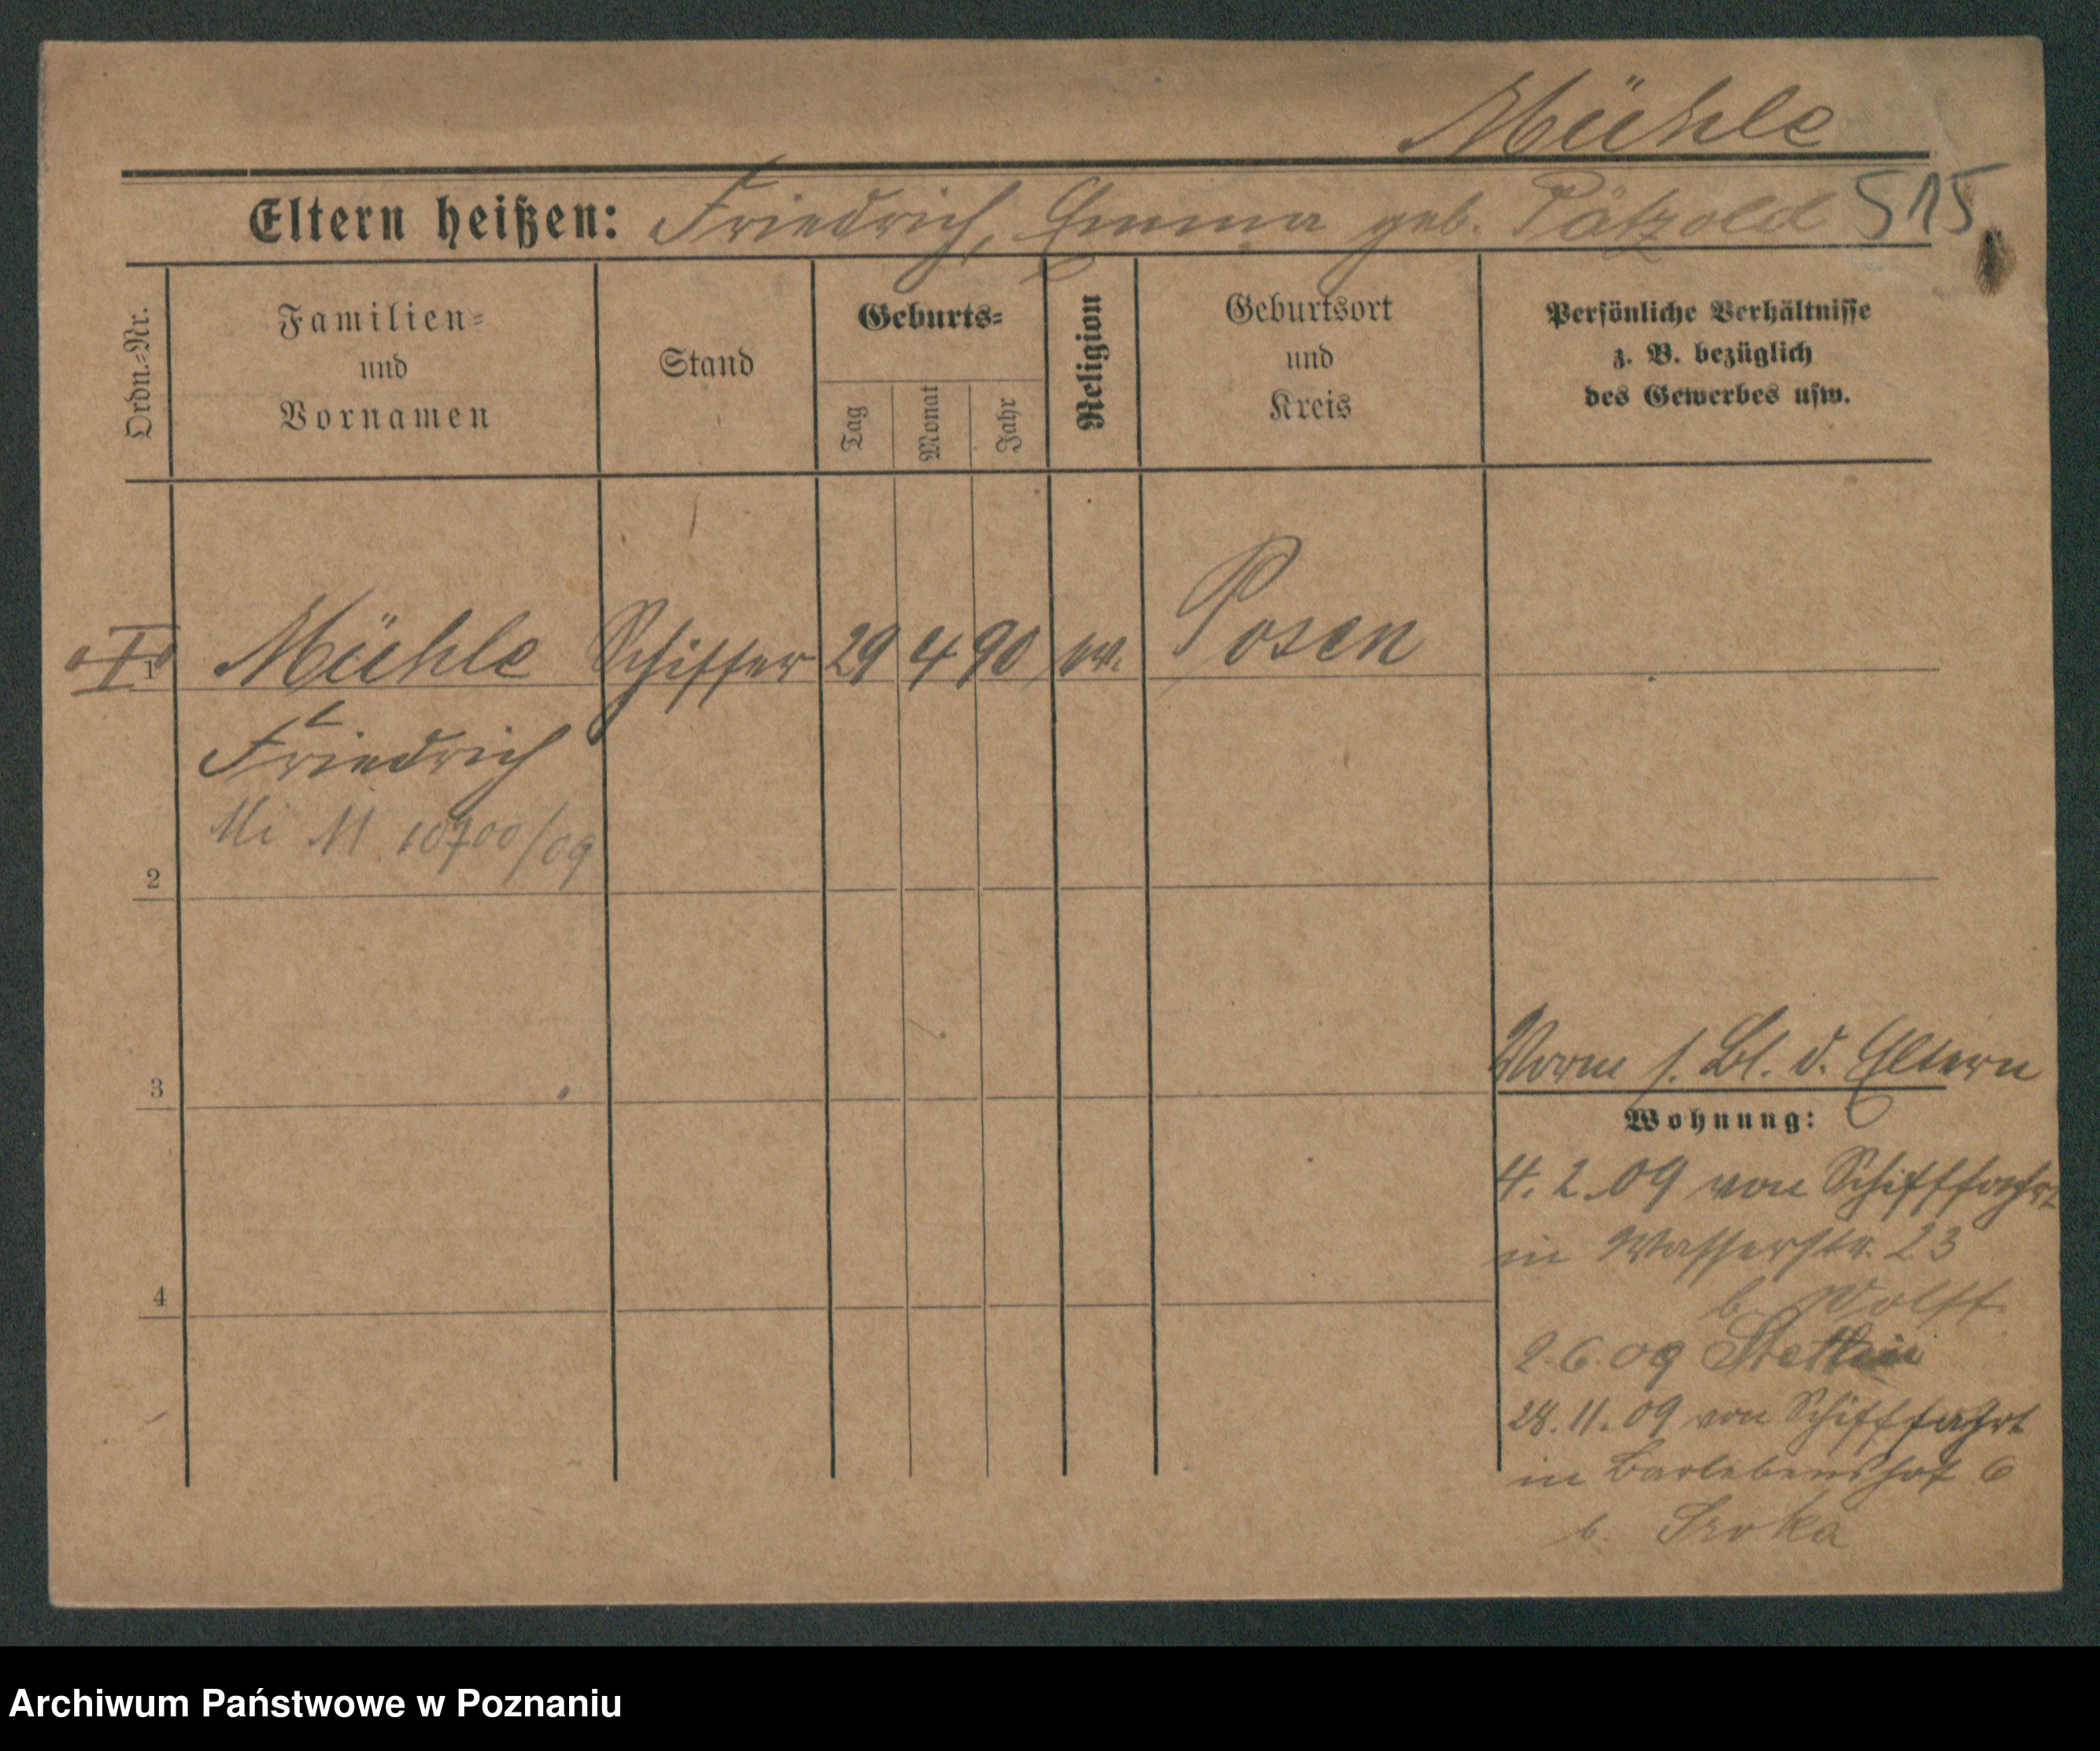 Mühle
Eltern heißen: Friedrich, Emma geb. Pätzold 515
Ordn.-Nr.
Familien-
und
Vornamen
Stand
Geburts-
Tag
Monat
Jahr
Religion
Geburtsort
und
Kreis
Persönliche Verhältnisse
z. B. bezüglich
des Gewerbes usw.
1 Mühle Schiffer 29 4 90 ev. Posen
Friedrich
Mi M 10700/09
2
3
4
Vorm s. Bl. d. Eltern
Wohnung:
4.2.09 von Schifffahrt
in Wasserstr. 23
b. Wolff
2.6.09 Stettin
28.11.09 von Schifffahrt
in Barlebenshof 6
b. Sroka
Archiwum Państwowe w Poznaniu